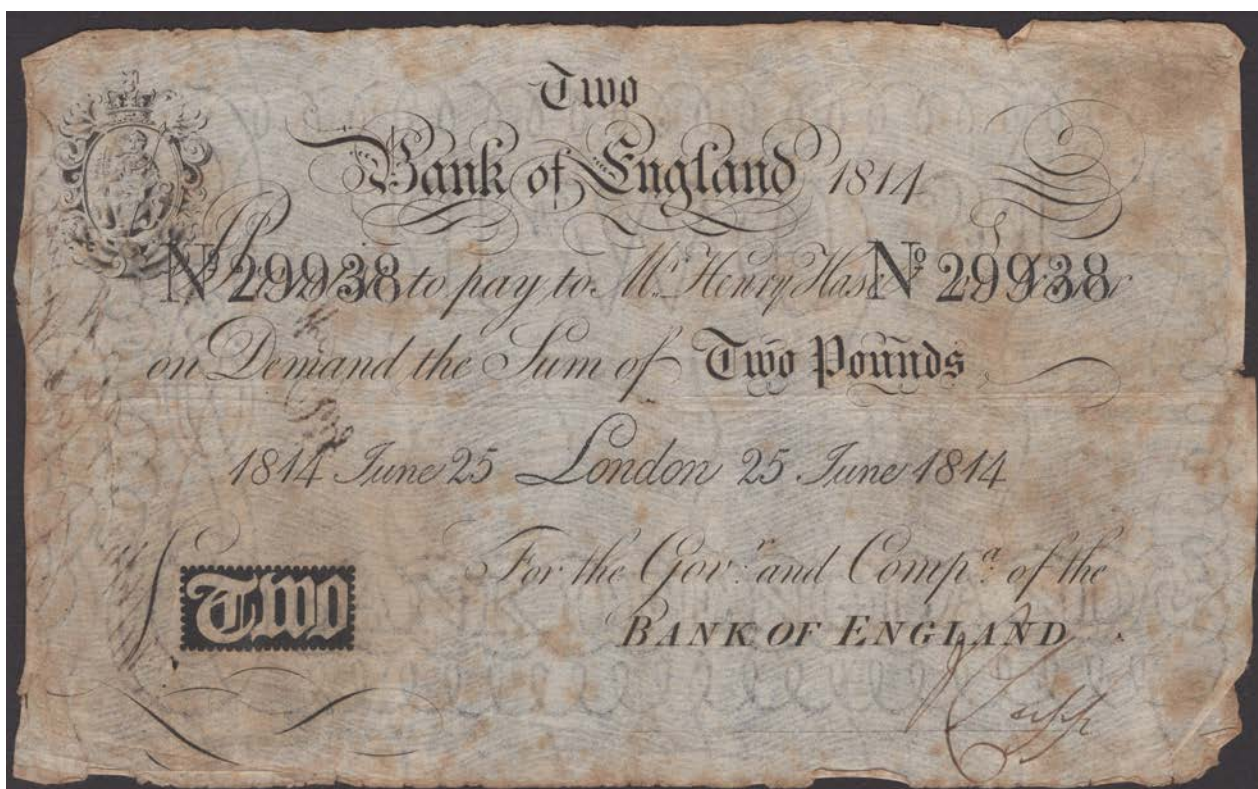 Two
Bank of England 1814
Nº 29938 to pay to Mr. Henry Hase Nº 29938
on Demand the Sum of Two Pounds
1814 June 25 London 25 June 1814
For the Govr. and Compa. of the
BANK OF ENGLAND
Two